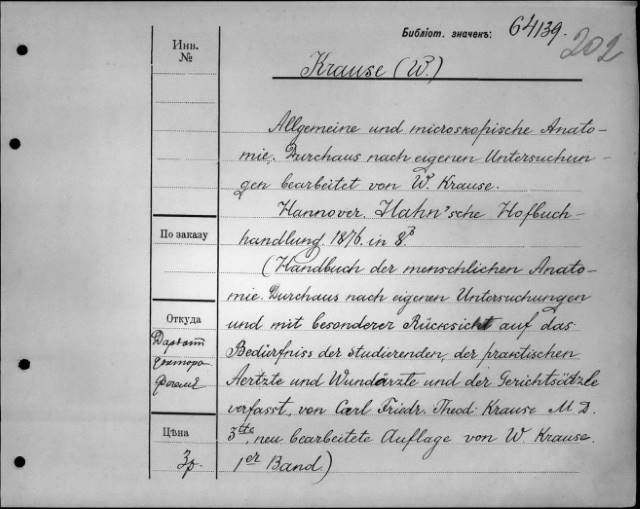 Библіот. значекъ: 64/139.
202
Инв. №
Krause (W.)
Allgemeine und microskopische Anato-
mie. Durchaus nach eigenen Untersuchun-
gen bearbeitet von W. Krause.
Hannover. Hahn'sche Hofbuch-
По заказу
handlung. 1876. in 8º
(Handbuch der menschlichen Anato-
mie. Durchaus nach eigenen Untersuchungen
Откуда
und mit besonderer Rücksicht auf das
Bedürfniss der studierenden, der praktischen
Aertzte und Wundärzte und der
verfasst, von Carl Friedr. Theod. Krause M. D.
Цѣна
3te, neu bearbeitete Auflage von W. Krause.
3р.
1er Band.)